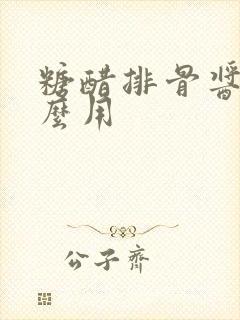 糖醋排骨酱
麼用
公子齊